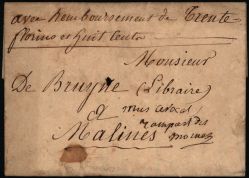 avec Remboursement de Trente
florins et huit Cents
Monsieur
De Bruyne (Libraire)
a
Malines
rempart des
moines